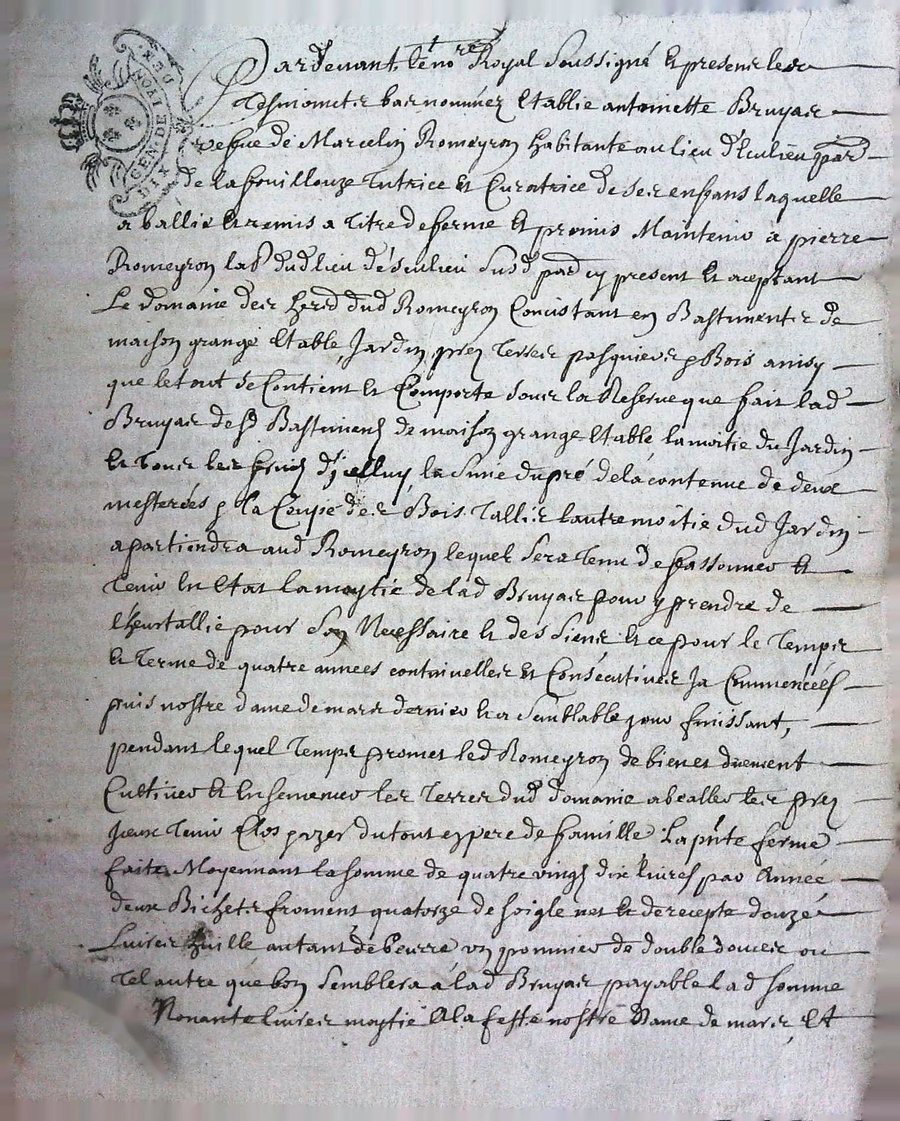 GEN DE LYON DIX DEN
Pardevant le no.re Royal soussigné et presens les
Tesmoins bas nommez Establie antoinette Bruyas
vefve de Marcelin Romeyron habitante au lieu d'Eculieu parr
de la fouillouze Tutrice et Curatrice de ses enfans laquelle
a ballié et remis a Titre de ferme et promis Maintenir a pierre
Romeyron lab.r dud lieu d'éculieu susd parr cy present et aceptant
Le domaine des herd dud Romeyron Concistant en Bastimentz de
maison grange Etable Jardin prez Terres pasquiers et Bois ainsy
que le tout se Contient et Comporte sous la Reserve que fait lad
Bruyas desd Bastimens de maison grange Etable la moitie du Jardin
et tous les fruis d'jcelluy, la sime du pré de la contenue de deux
mesterées et la Coupe des Bois Tallis lautre moitie dud Jardin
apartiendra aud Romeyron lequel sera tenu de fassonner et
Tenir en Etat la moytié de lad Bruyas pour y prendre de
l'heurtallie pour son Necessaire et des siens et ce pour le Temps
et Terme de quatre annees continuelles et Consecutives Ja Commencées
puis nostre dame de mars dernier et a semblable jour finissant,
pendant lequel Temps promet led Romeyron de bien et duement
Cultiver et Ensemencer les Terres dud domaine abealler les prez
Jceux Tenir Clos et uzer du tout en pere de famille La pnte ferme
faite Moyennant la somme de quatre vings dix livres par Année
deux Bichets froment quatorze de soigle net et de recepte douze
Livres huille autant de beurre un pommier de double douces ou
tel autre que bon semblera à lad Bruyas payable lad somme
Nonante livres moytié a la feste nostre Dame de mars, Et